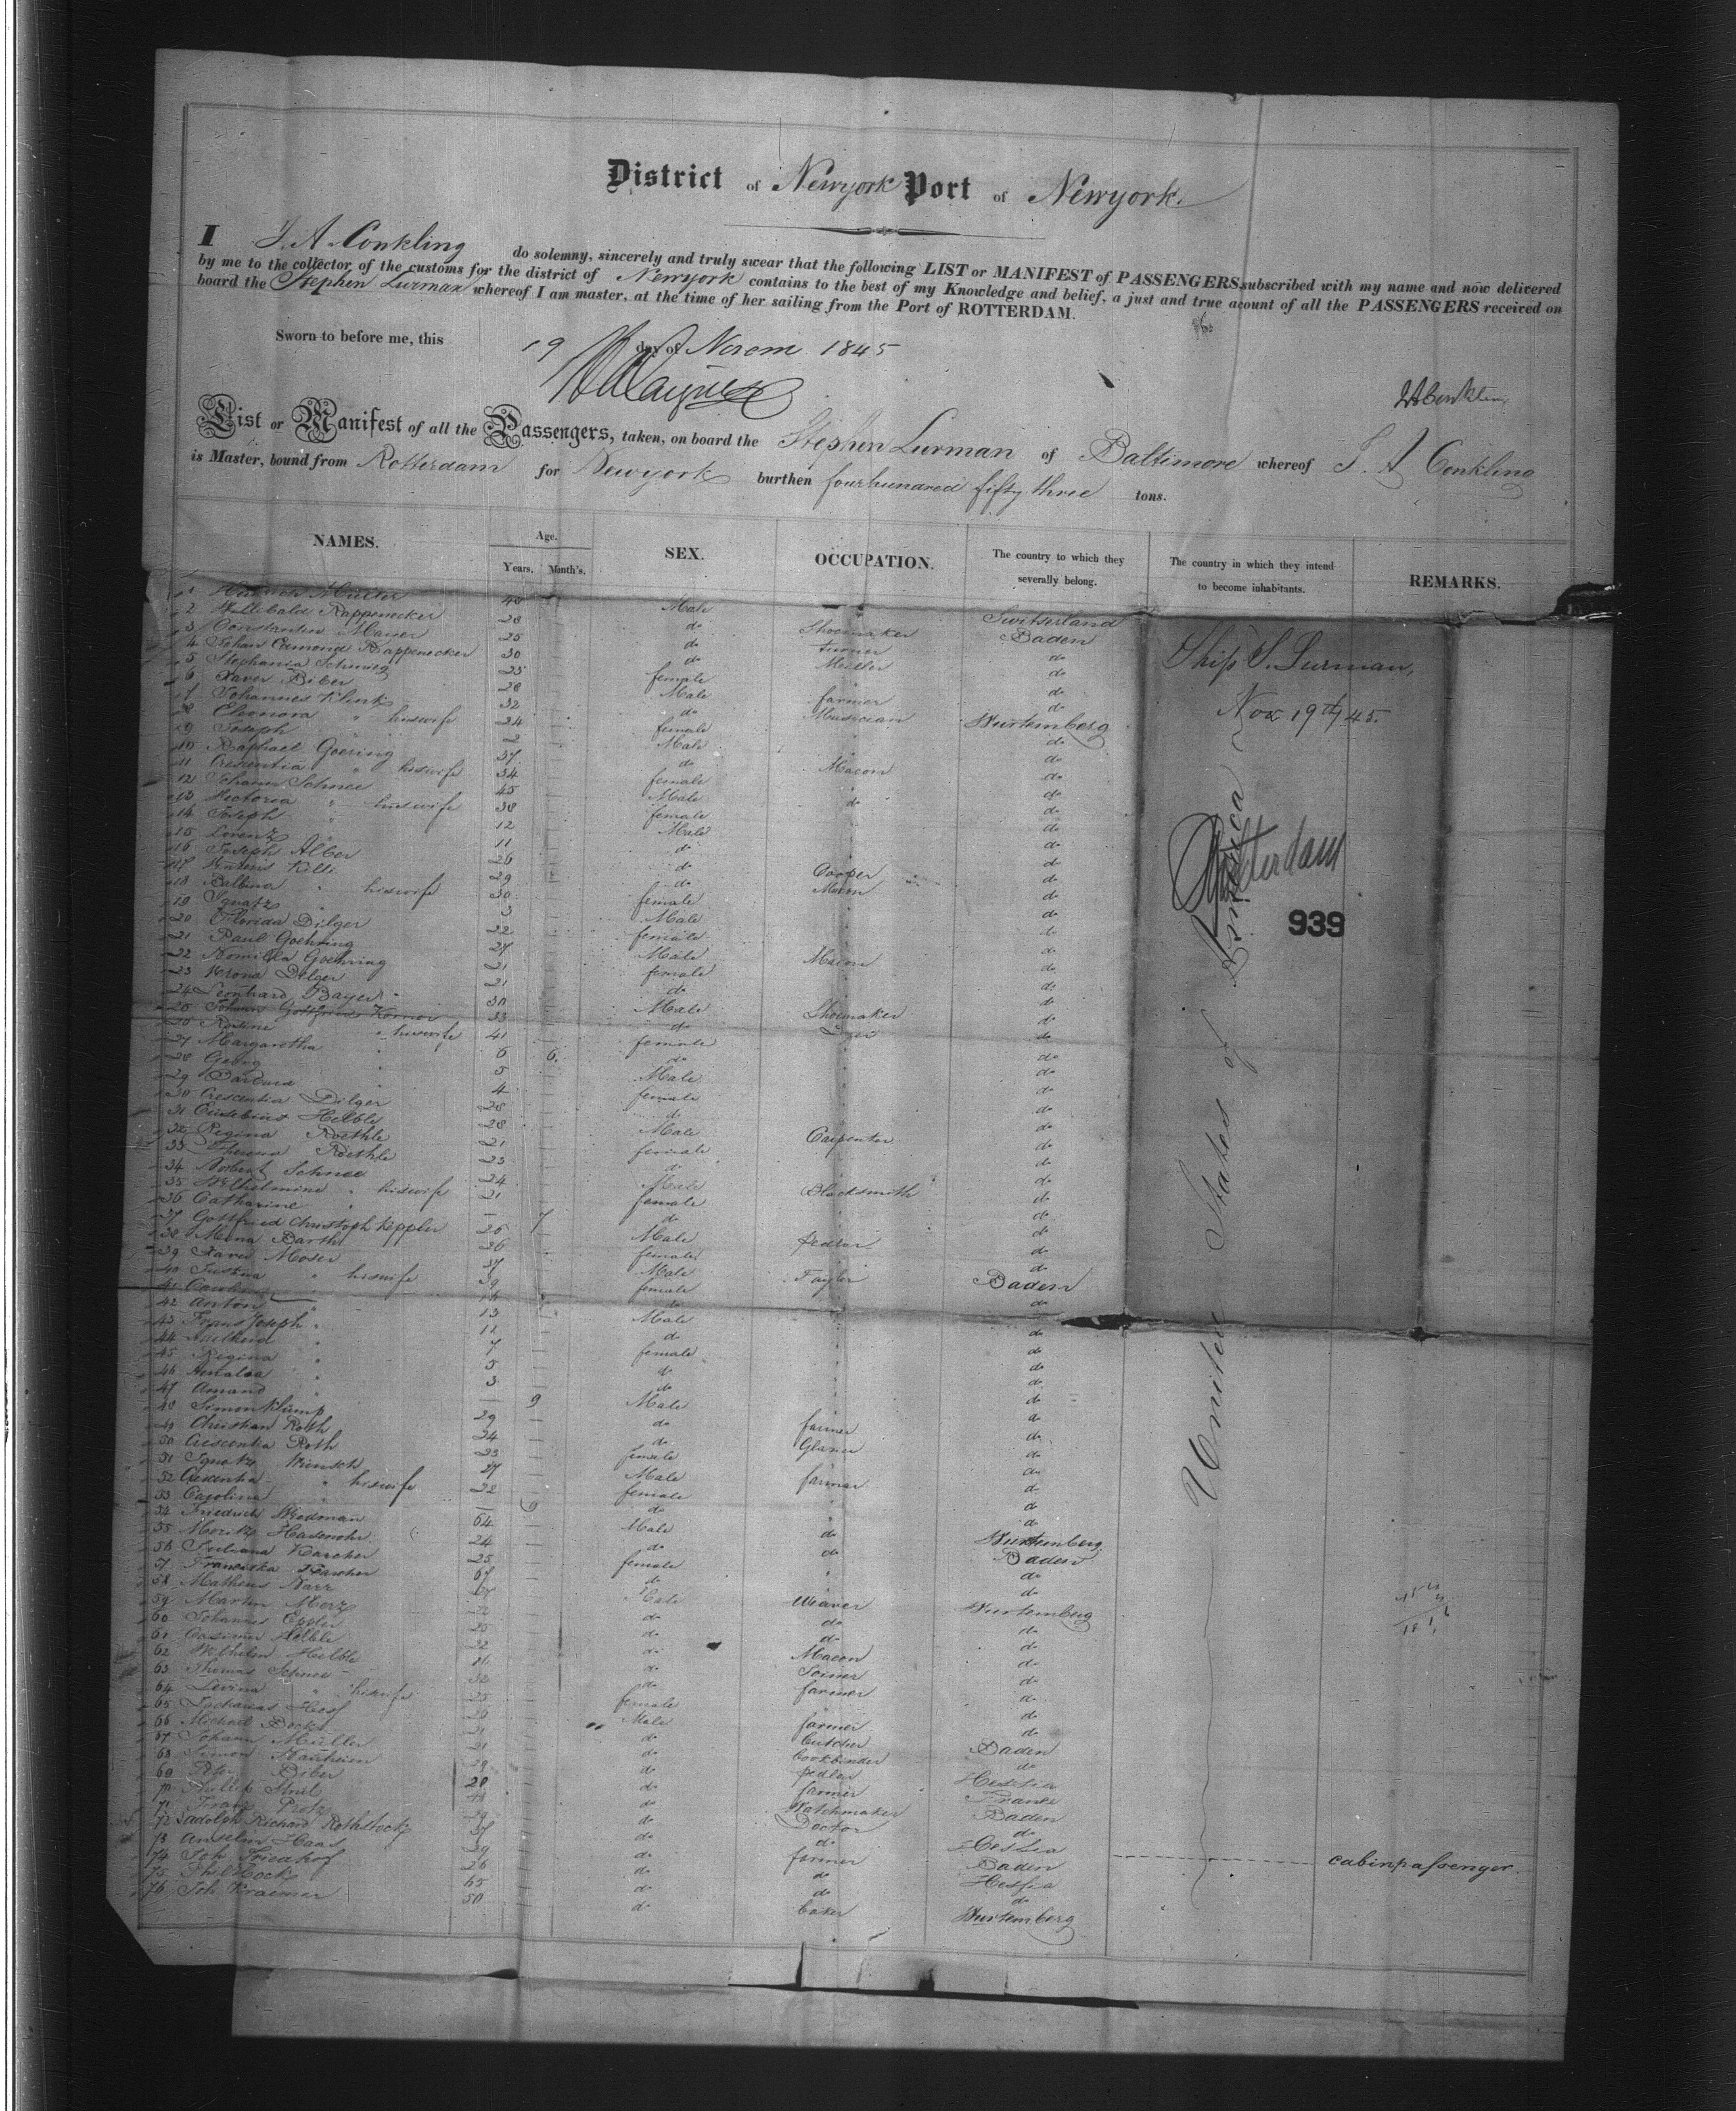 District of Newyork Port of Newyork.
I J. A. Conkling do solemny, sincerely and truly swear that the following LIST or MANIFEST of PASSENGERS, subscribed with my name and now delivered
by me to the collector of the customs for the district of Newyork contains to the best of my Knowledge and belief, a just and true acount of all the PASSENGERS received on
board the Stephen Lurman whereof I am master, at the time of her sailing from the Port of ROTTERDAM.
Sworn to before me, this 19 day of Novem 1845
List or Manifest of all the Passengers, taken, on board the Stephen Lurman of Baltimore whereof J. A Conkling
is Master, bound from Rotterdam for Newyork burthen fourhundred fifty three tons.
NAMES. Age. Years. Month's. SEX. OCCUPATION. The country to which they severally belong. The country in which they intend to become inhabitants. REMARKS.
1 Müller 48 Male Switserland
2 Willibald Rappenecker 28 do Shoemaker Baden
3 Constantin Mauer 25 do turner do
4 Johan Edmond Rappenecker 30 do Muller do
5 Stephania 25 female do
6 Xaver Biber 28 Male farmer do
7 Johannes Klink 32 do Musician Wurtemberg
8 Eleonora " hiswife 24 female do
9 Joseph " 2 Male do
10 Raphael Goering 37 do Macon do
11 Crescentia " hiswife 34 female do
12 Johann Schnee 45 Male do do
13 Victoria " hiswife 38 female do
14 Joseph " 12 Male do
15 Lorenz " 11 do do
16 Joseph Alber 26 do Cooper do
17 Killi 29 do Macon do
18 Balbina " hiswife 30 female do
19 Ignatz " 3 Male do
20 Florida Dilger 22 female do
21 Paul Goehring 27 Male Macon do
22 Goehring 21 female do
23 Verona Dilger 21 do do
24 Leonhard Bayer 30 Male Shoemaker do
25 Johann Gottfried Körner 33 do do
26 Rosine " hiswife 41 female do
27 Margaretha " 6 6. do do
28 Georg " 5 Male do
29 Barbara " 4 female do
30 Crescentia Dilger 28 do do
31 Eusebius Helble 28 Male Carpenter do
32 Regina Roethle 21 female do
33 Theresia Roethle 23 do do
34 Norbert Schnee 24 Male Blacksmith do
35 Wilhelmine " hiswife 21 female do
36 Catharine " 7 do do
37 Gottfried Christoph Keppler 26 Male pedlar do
38 Mina Barth 26 female do
39 Xaver Moser 37 Male Tayler Baden
40 Justina " hiswife 39 female do
41 Caroline " do
42 Anton " 13 Male do
43 Frans Joseph " 11 do do
44 " 7 female do
45 Regina " 5 do do
46 Amalia " 3 do do
47 Amand " 9 Male do
48 Simon Klump 29 do farmer do
49 Christian Roth 24 do Glaser do
50 Crescentia Roth 23 female do
51 Ignatz Wunsch 27 Male farmer do
52 Crescentia " hiswife 22 female do
53 Carolina " 9 do do
54 Friedrich Wiedman 64 Male do Wurtemberg
55 Moritz 24 do do Baden
56 Juliana Karcher 25 female do
57 Franziska Karcher do do
58 Matheus Narr Male Weaver Wurtemberg
59 Martin Merz do do do
60 Johannes Eppler 25 do do do
61 Casimir Helble 22 do Macon do
62 Wilhelm Helble do Joiner do
63 Thomas Schnee 32 do farmer do
64 Levina " hiswife 23 female do
65 Zacharias Hess 26 Male farmer do
66 Michael Bock 21 do butcher Baden
67 Johann Müller 21 do bookbinder do
68 Simon Mauheim 29 do pedler Hessia
69 Peter Biber 28 do farmer France
70 Philip do Watchmaker Baden
71 Franz 29 do Doctor do
72 Richard Rothstock 37 do do Hessia
73 Anselm Haas 29 do farmer Baden cabinpassenger.
74 Joh Friedhof 26 do do Hessia
75 Phil Bock 65 do do do
76 Joh Kraemer 50 do baker Wurtemberg
United States of America
Ship S. Lurman,
Nov 19th/45.
Rotterdam
939